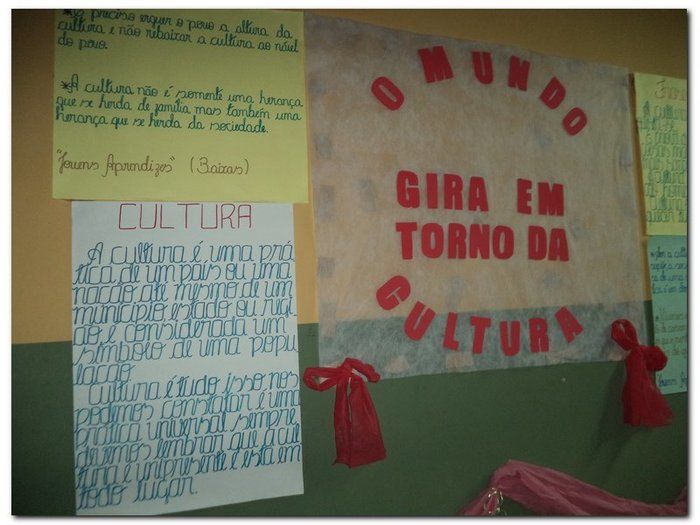 *É preciso erguer o povo a altura da
cultura e não rebaixar a cultura ao nível
do povo.
*A cultura não é somente uma herança
que se herda de família mas também uma
herança que se herda da sociedade.
"Jovens Aprendizes" (Baixas)
CULTURA
A cultura é uma prá
tica de um país ou uma
nação até mesmo de um
município, estado ou regi
ão e considerada um
símbolo de uma popu
lação
Cultura é tudo isso nos
podemos constatar é uma
prática universal sempre
devemos lembrar que a cul
tura é unipresente e está em
todo lugar.
O MUNDO
GIRA EM
TORNO DA
CULTURA